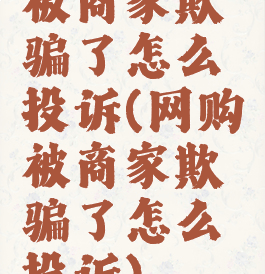 被商家欺
骗了怎么
投诉(网购
被商家欺
骗了怎么
投诉)